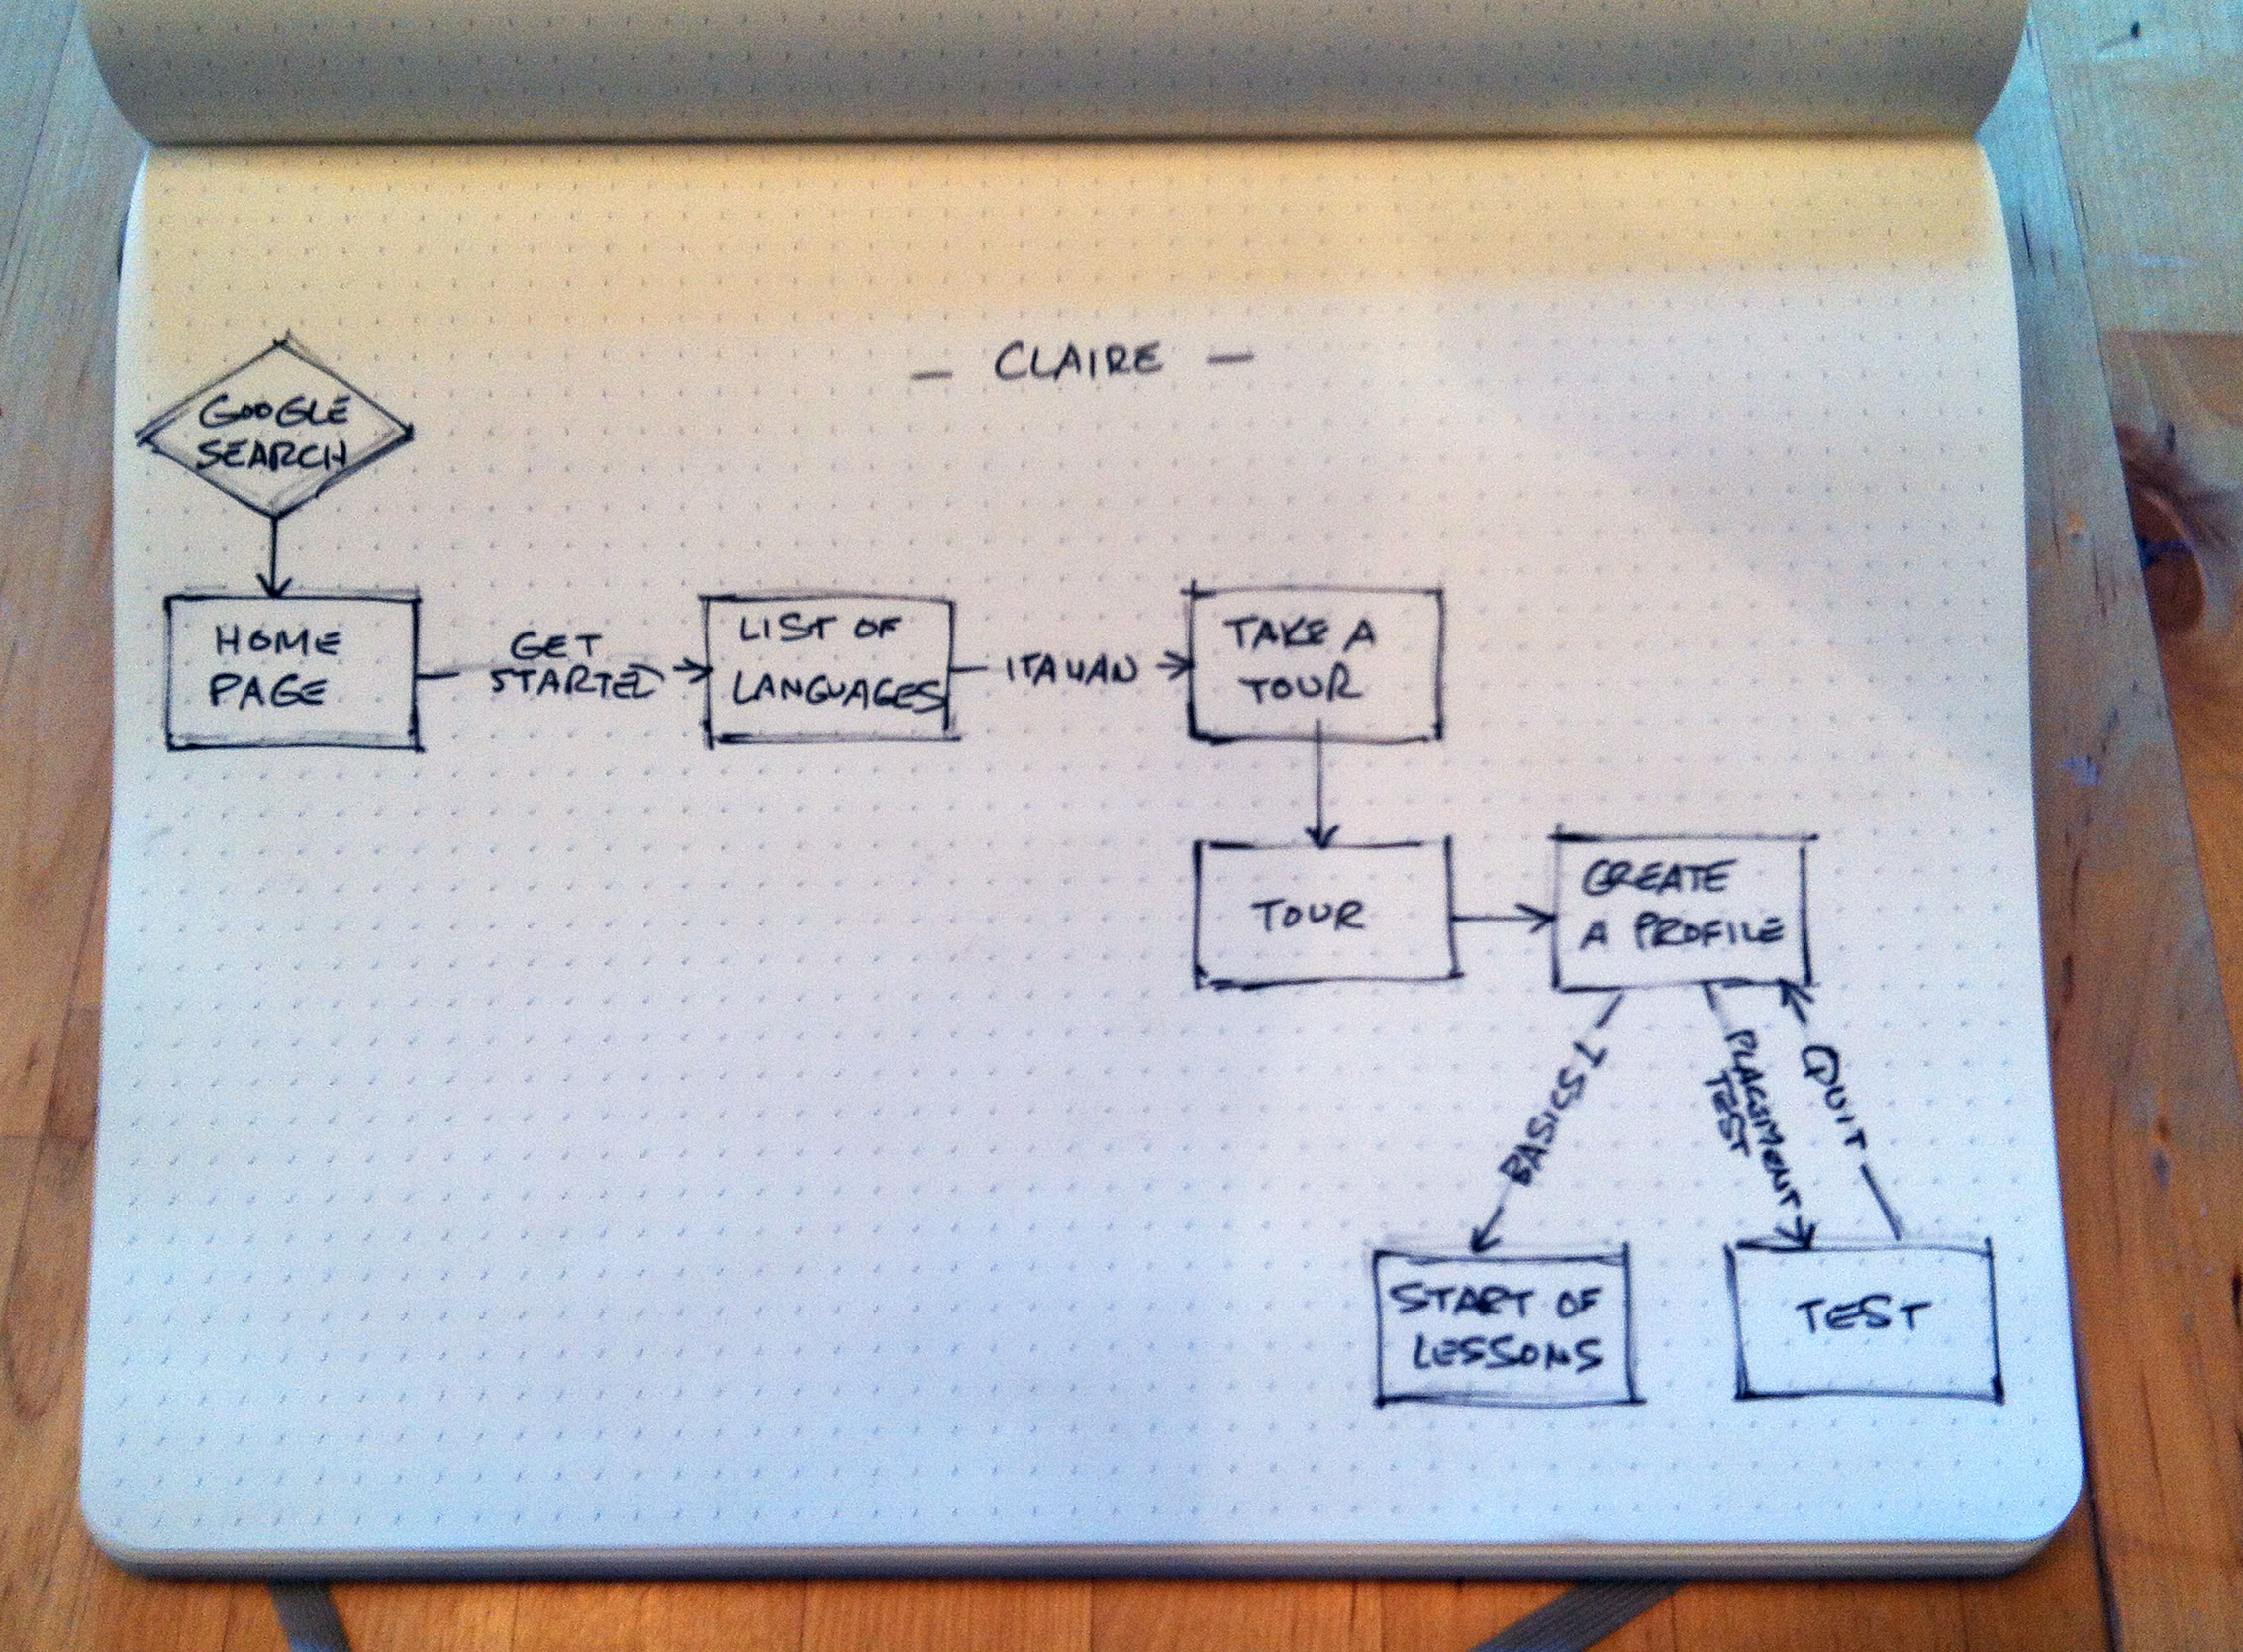 — CLAIRE —
GOOGLE
SEARCH
HOME
PAGE
GET
STARTED
LIST OF
LANGUAGES
ITALIAN
TAKE A
TOUR
TOUR
CREATE
A PROFILE
BASICS 1
PLACEMENT
TEST
QUIT
START OF
LESSONS
TEST